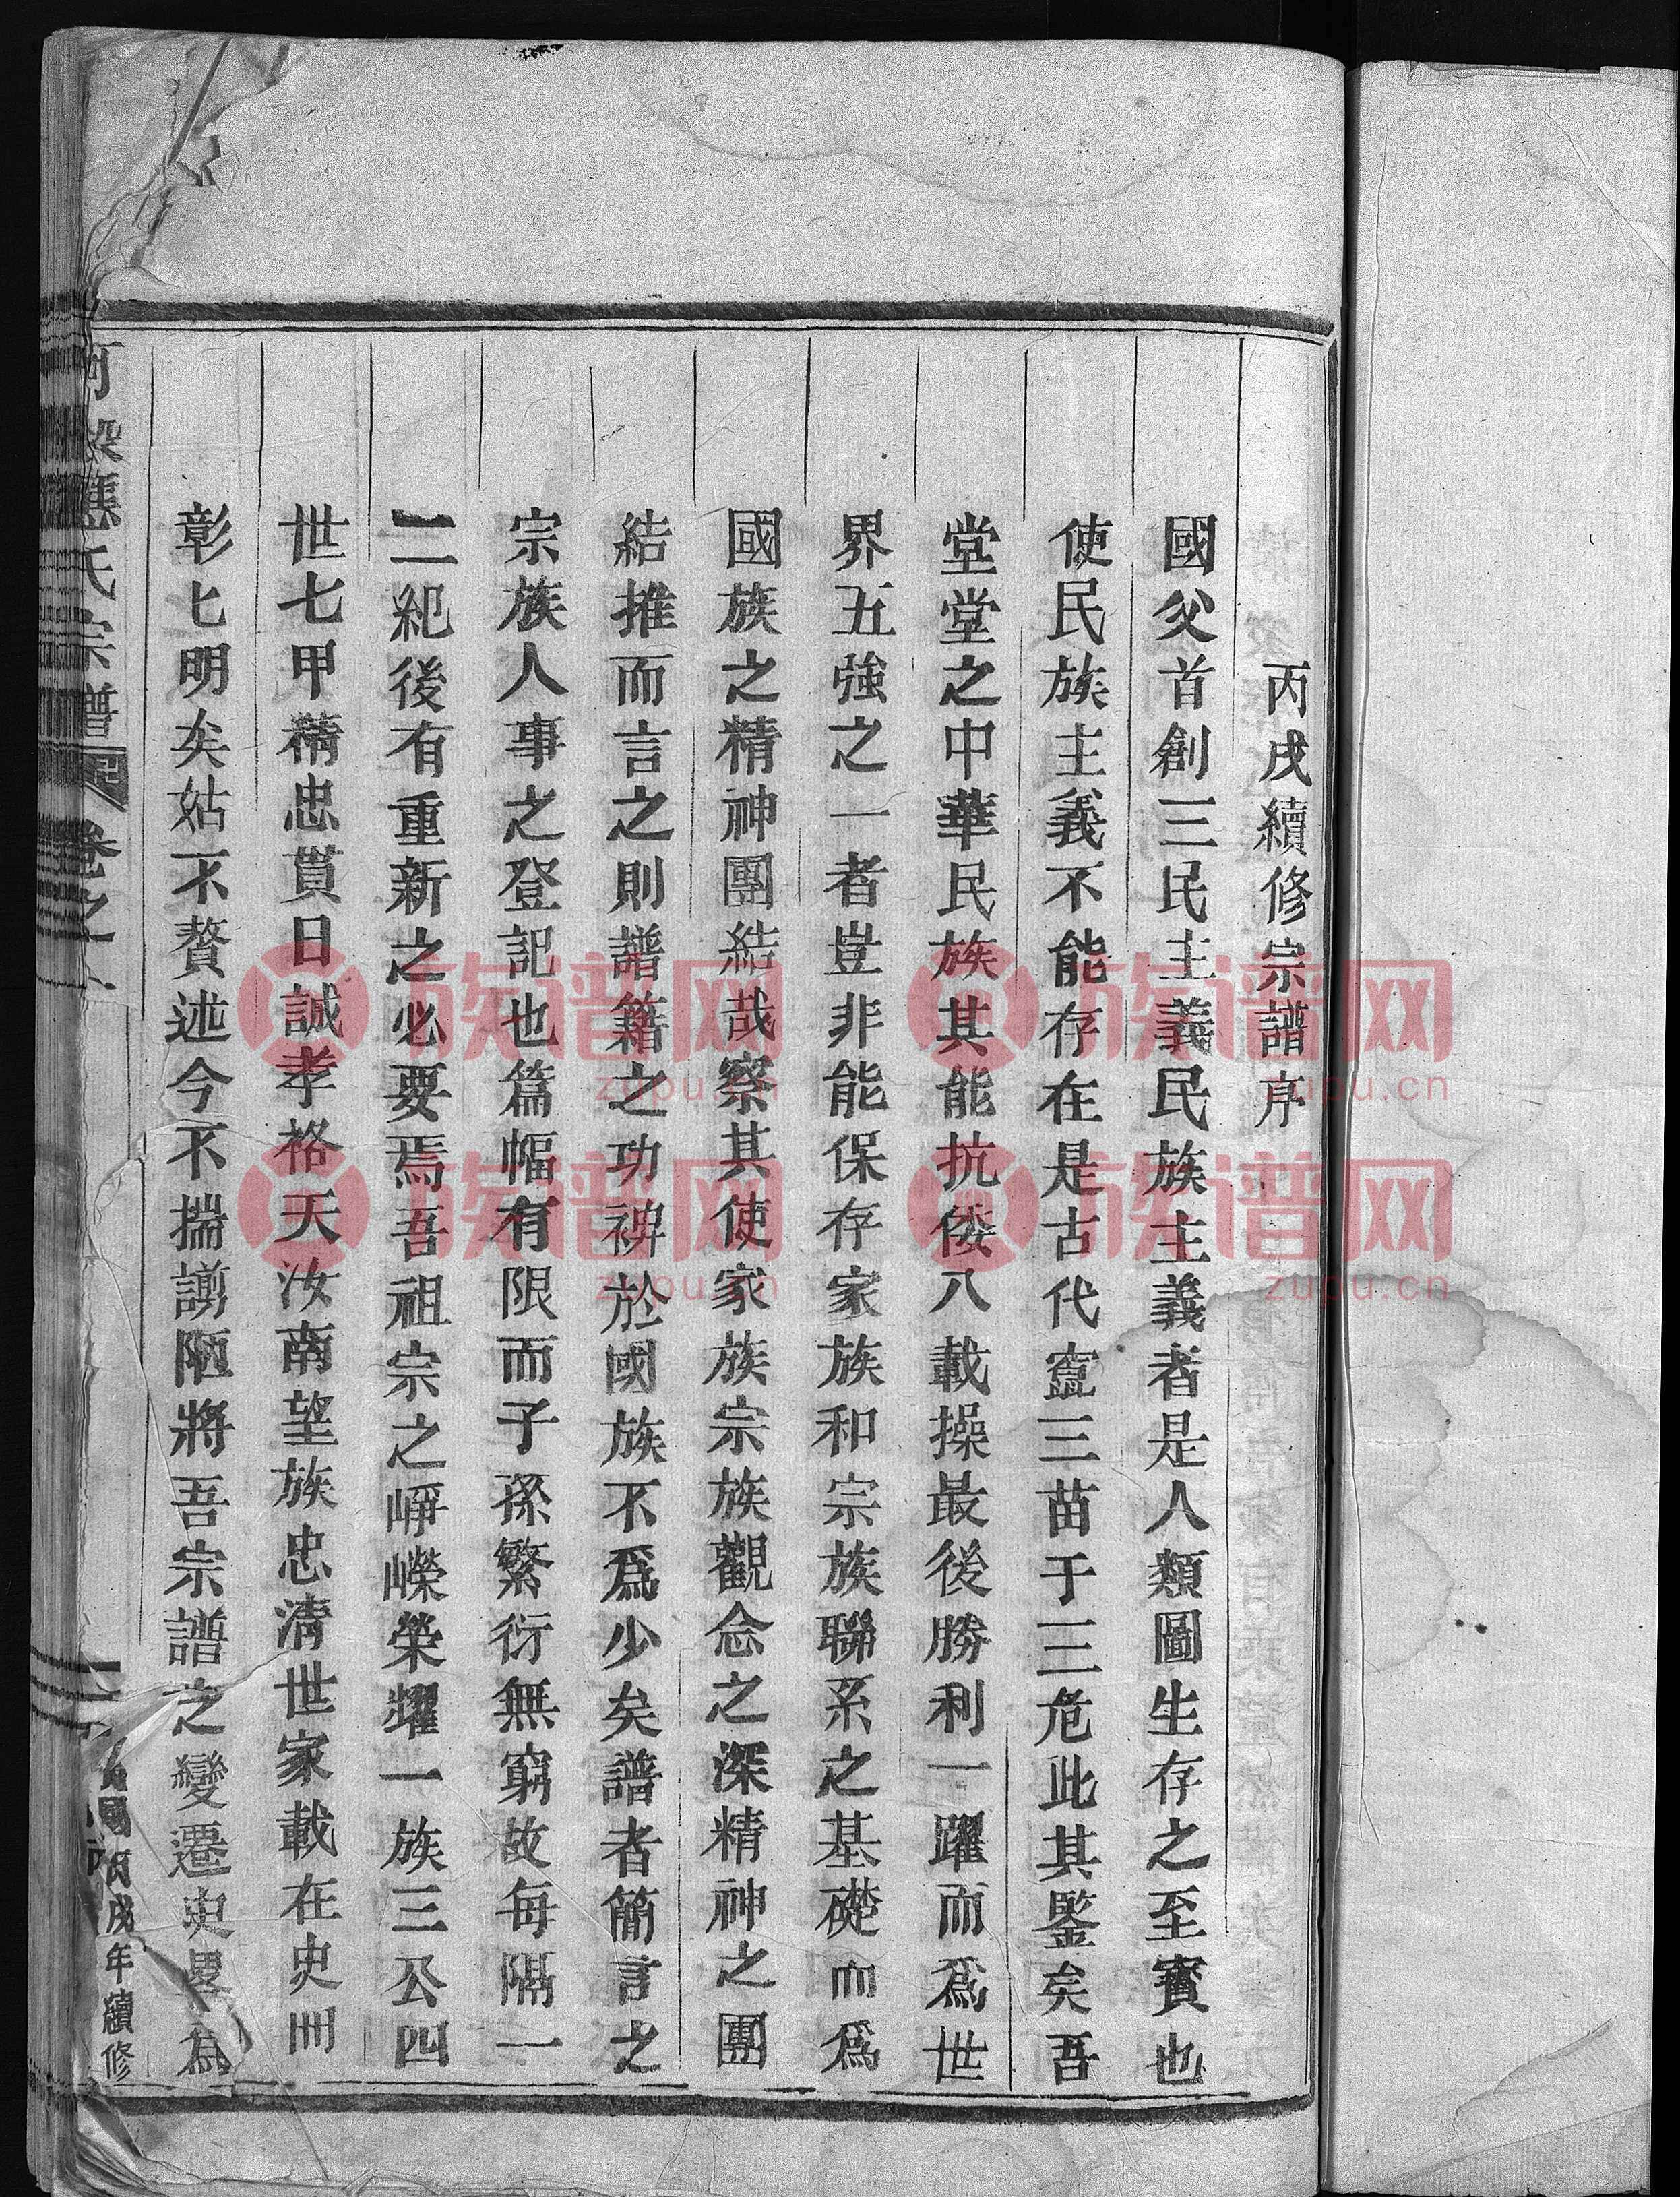 丙戌續修宗譜序
國父首創三民主義民族主義者是人類圖生存之至寳也
使民族主義不能存在是古代竄三苗于三危此其鑒矣吾
堂堂之中華民族其能抗倭八載操最後勝利一躍而爲世
界五強之一者豈非能保存家族和宗族聯系之基礎而爲
國族之精神團結哉察其使家族宗族觀念之深精神之團
結推而言之則譜籍之功裨於國族不爲少矣譜者簡言之
宗族人事之登記也篇幅有限而子孫繁衍無窮故每隔一
二紀後有重新之必要焉吾祖宗之崢嶸榮耀一族三公四
世七甲精忠貫日誠孝格天汝南望族忠清世家載在史冊
彰匕明矣姑不贅述今不揣謭陋將吾宗譜之變遷史畧爲
應氏宗譜 卷之
國丙戌年續修
族谱网
zupu.cn
族谱网
zupu.cn
族谱网
zupu.cn
族谱网
zupu.cn